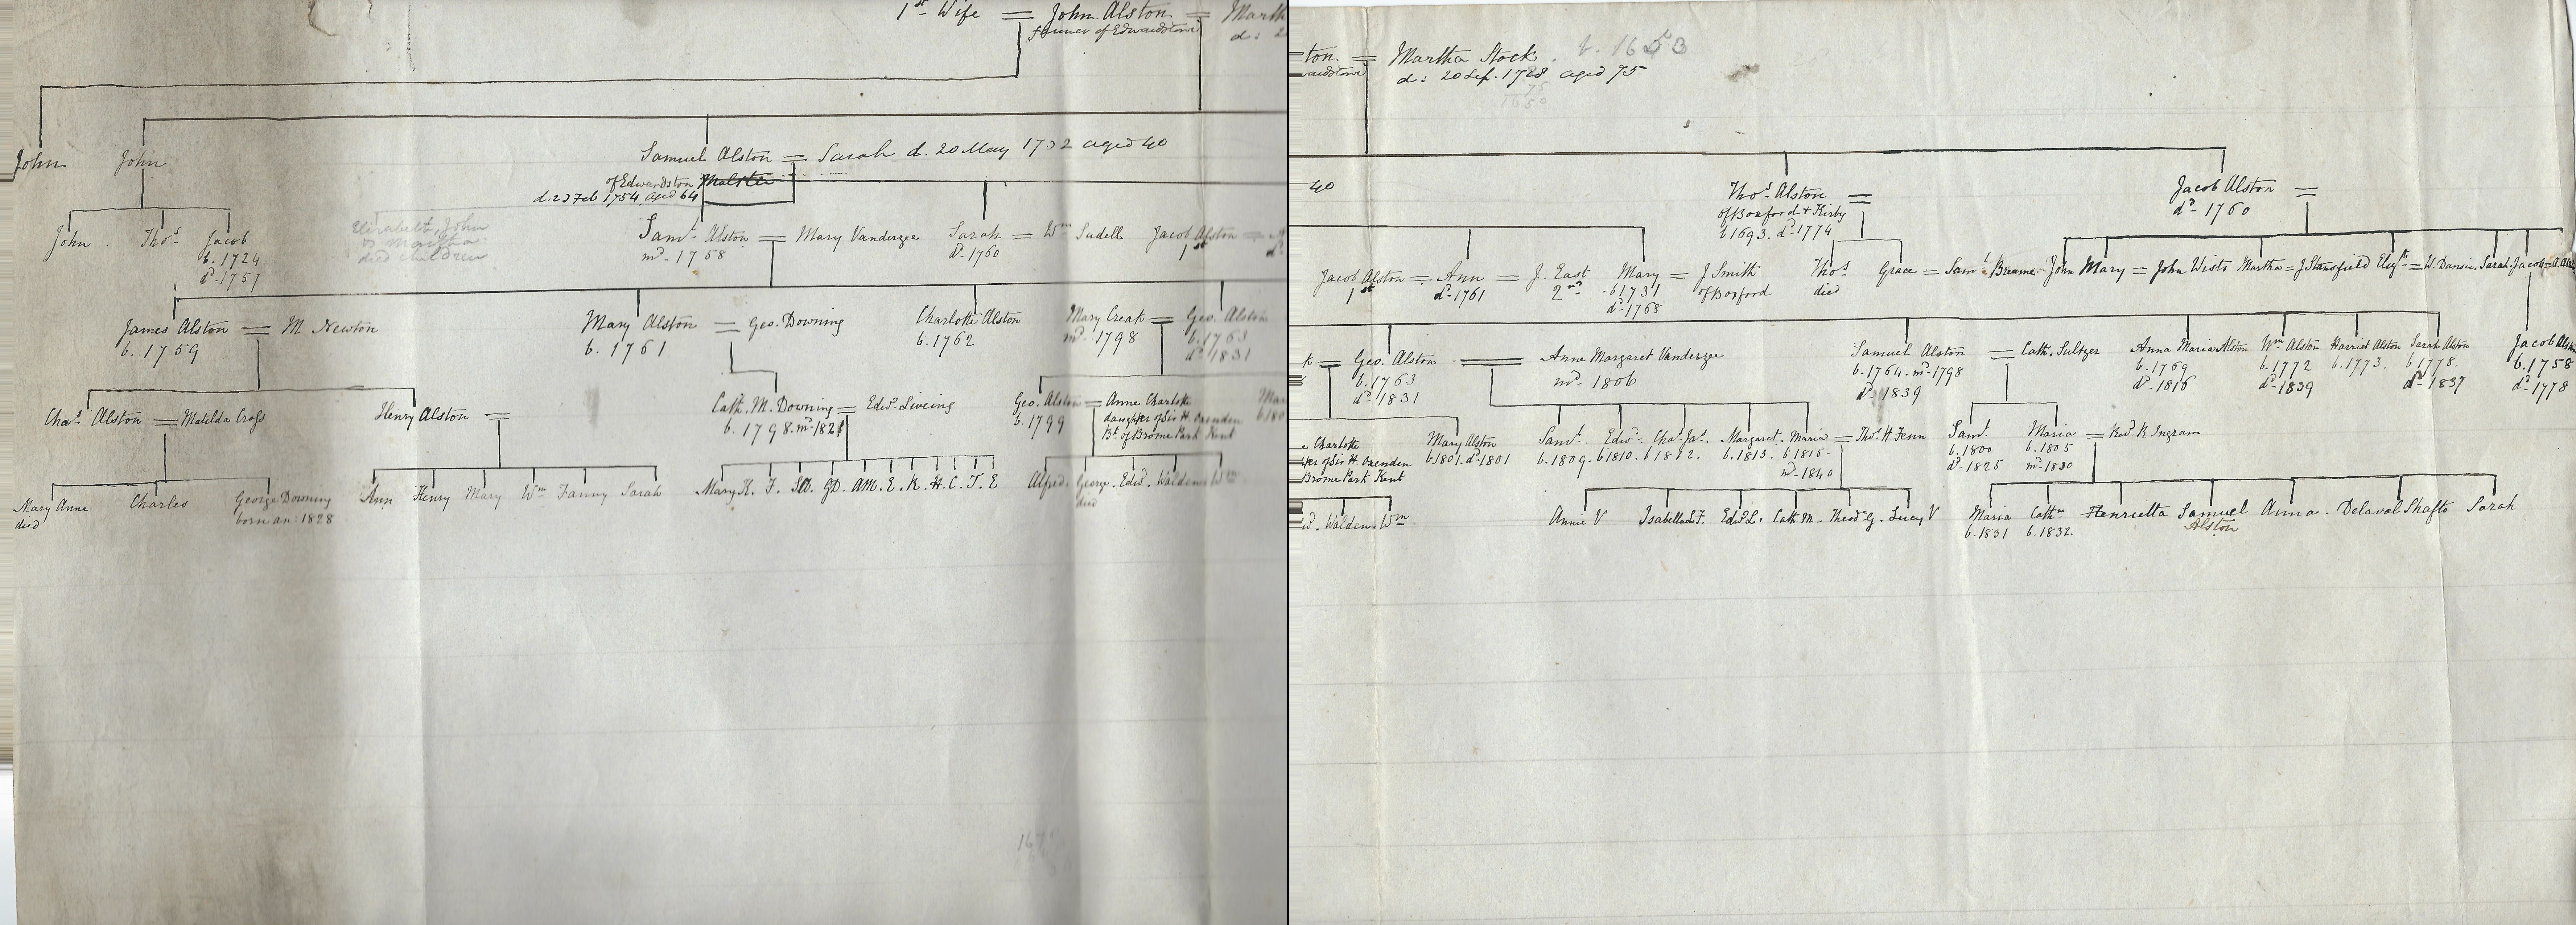 1st Wife = John Alston = Marth
Farmer of Edwardstone
d: 2
John
John
Samuel Alston = Sarah d. 20 May 1732 aged 40
of Edwardston Malster
d. 23 Feb 1754 aged 64
John. Thos. Jacob
b. 1724
d. 1757
Elizabeth, John
& Martha
died children
Saml. Alston = Mary Vanderzee
md. 1758
Sarah = Wm Sudell
d. 1760
Jacob Alston =
1st
James Alston = M. Newton
b. 1759
Mary Alston = Geo. Downing
b. 1761
Charlotte Alston
b. 1762
Mary Creak = Geo. Alston
md. 1798
b. 1763
d. 1831
Chas. Alston = Matilda Cross
Henry Alston =
Cath. M. Downing = Edwd. Liveing
b. 1798. md. 1821
Geo. Alston = Anne Charlotte
b. 1799
daughter of Sir H. Oxenden
Bt. of Brome Park Kent
Mary Anne
died
Charles
George Downing
born an: 1828
Ann Henry Mary Wm Fanny Sarah
Alfred. George. Edwd. Walden. Wm
died
ton = Martha Stock. b. 1653
d: 20 Sep. 1728 aged 75
75
1650
40
Thos. Alston =
of Boxford & Kirby
b 1693. d. 1774
Jacob Alston =
d. 1760
Jacob Alston = Ann = J. East
1st
d. 1761
2nd
Mary = J Smith
b 1731
d. 1768
of Boxford
Thos.
died
Grace = Saml. Breame
John Mary = John Wists Martha = J Stansfield Elizth = W. Dansie. Sarah Jacob =
Geo. Alston = Anne Margaret Vanderzee
b. 1763
d. 1831
md. 1806
Samuel Alston = Cath. Sultzer
b. 1764. md. 1798
d. 1839
Anna Maria Alston
b. 1769
d. 1816
Wm Alston
b. 1772
d. 1839
Harriet Alston
b. 1773.
Sarah Alston
b. 1778.
d. 1837
Jacob Alston
b. 1758
d. 1778
e Charlotte
ter of Sir H. Oxenden
Brome Park Kent
Mary Alston
b. 1801. d. 1801
Saml. Edwd. Chas. Jas. Margaret. Maria = Thos. H. Fenn
b. 1809. b 1810. b 1812. b. 1813. b 1815.
md. 1840
Saml.
b. 1800
d. 1825
Maria = Revd. R Ingram
b. 1805
md. 1830
w. Walden. Wm
Annie V Isabella F. Edwd. L. Cath. M. Theod. G. Lucy V
Maria
b. 1831
Cathn.
b. 1832.
Henrietta Samuel Anna. Delaval Shafto Sarah
Alston